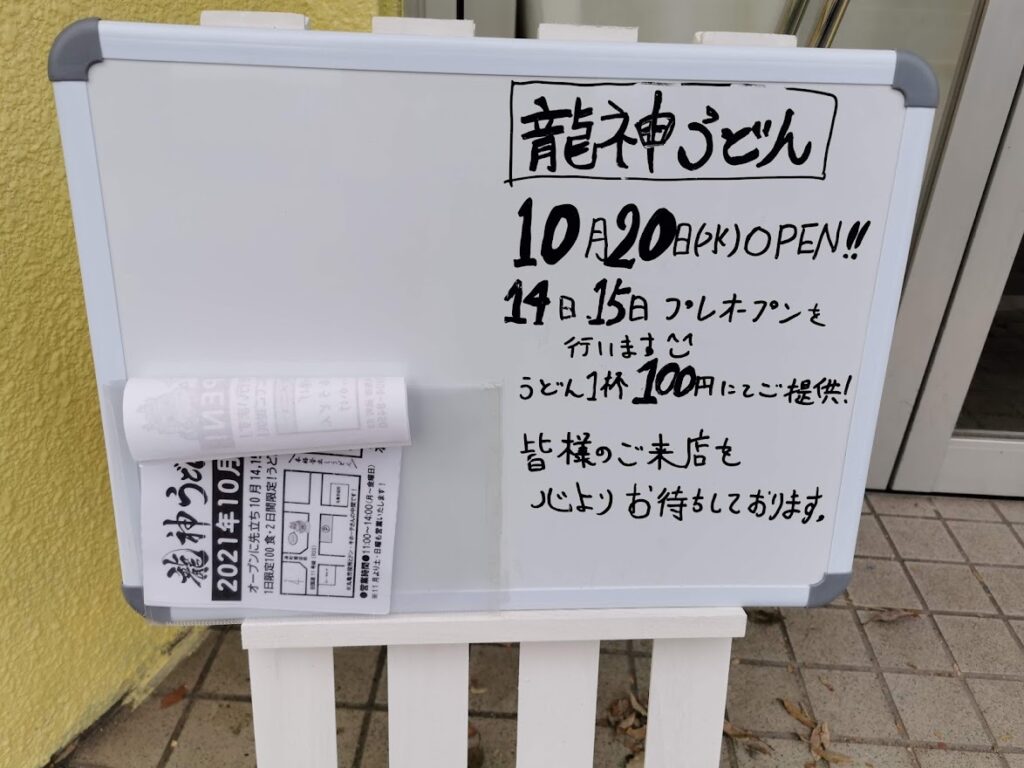 龍神うどん
10月20日(水)OPEN!!
14日.15日 プレオープンを
行います^^
うどん1杯 100円にてご提供!
皆様のご来店を
心よりお待ちしております。
龍神うど
2021年10月
オープンに先立ち10月14,15
1日限定100食・2日間限定!うど
●営業時間●11:00~14:00(月~金曜日)
※11月より土・日曜も営業いたします!